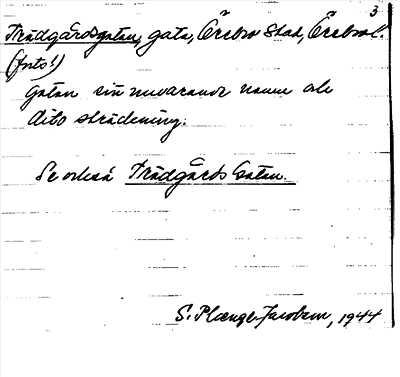 3
Trädgårdsgatan, gata, Örebro Stad, Örebro l.
(forts!)
gatan sin nuvarande namn och
dito sträckning.
Se också Trädgårds Gatan.
S. Plænge-Jacobson, 1944